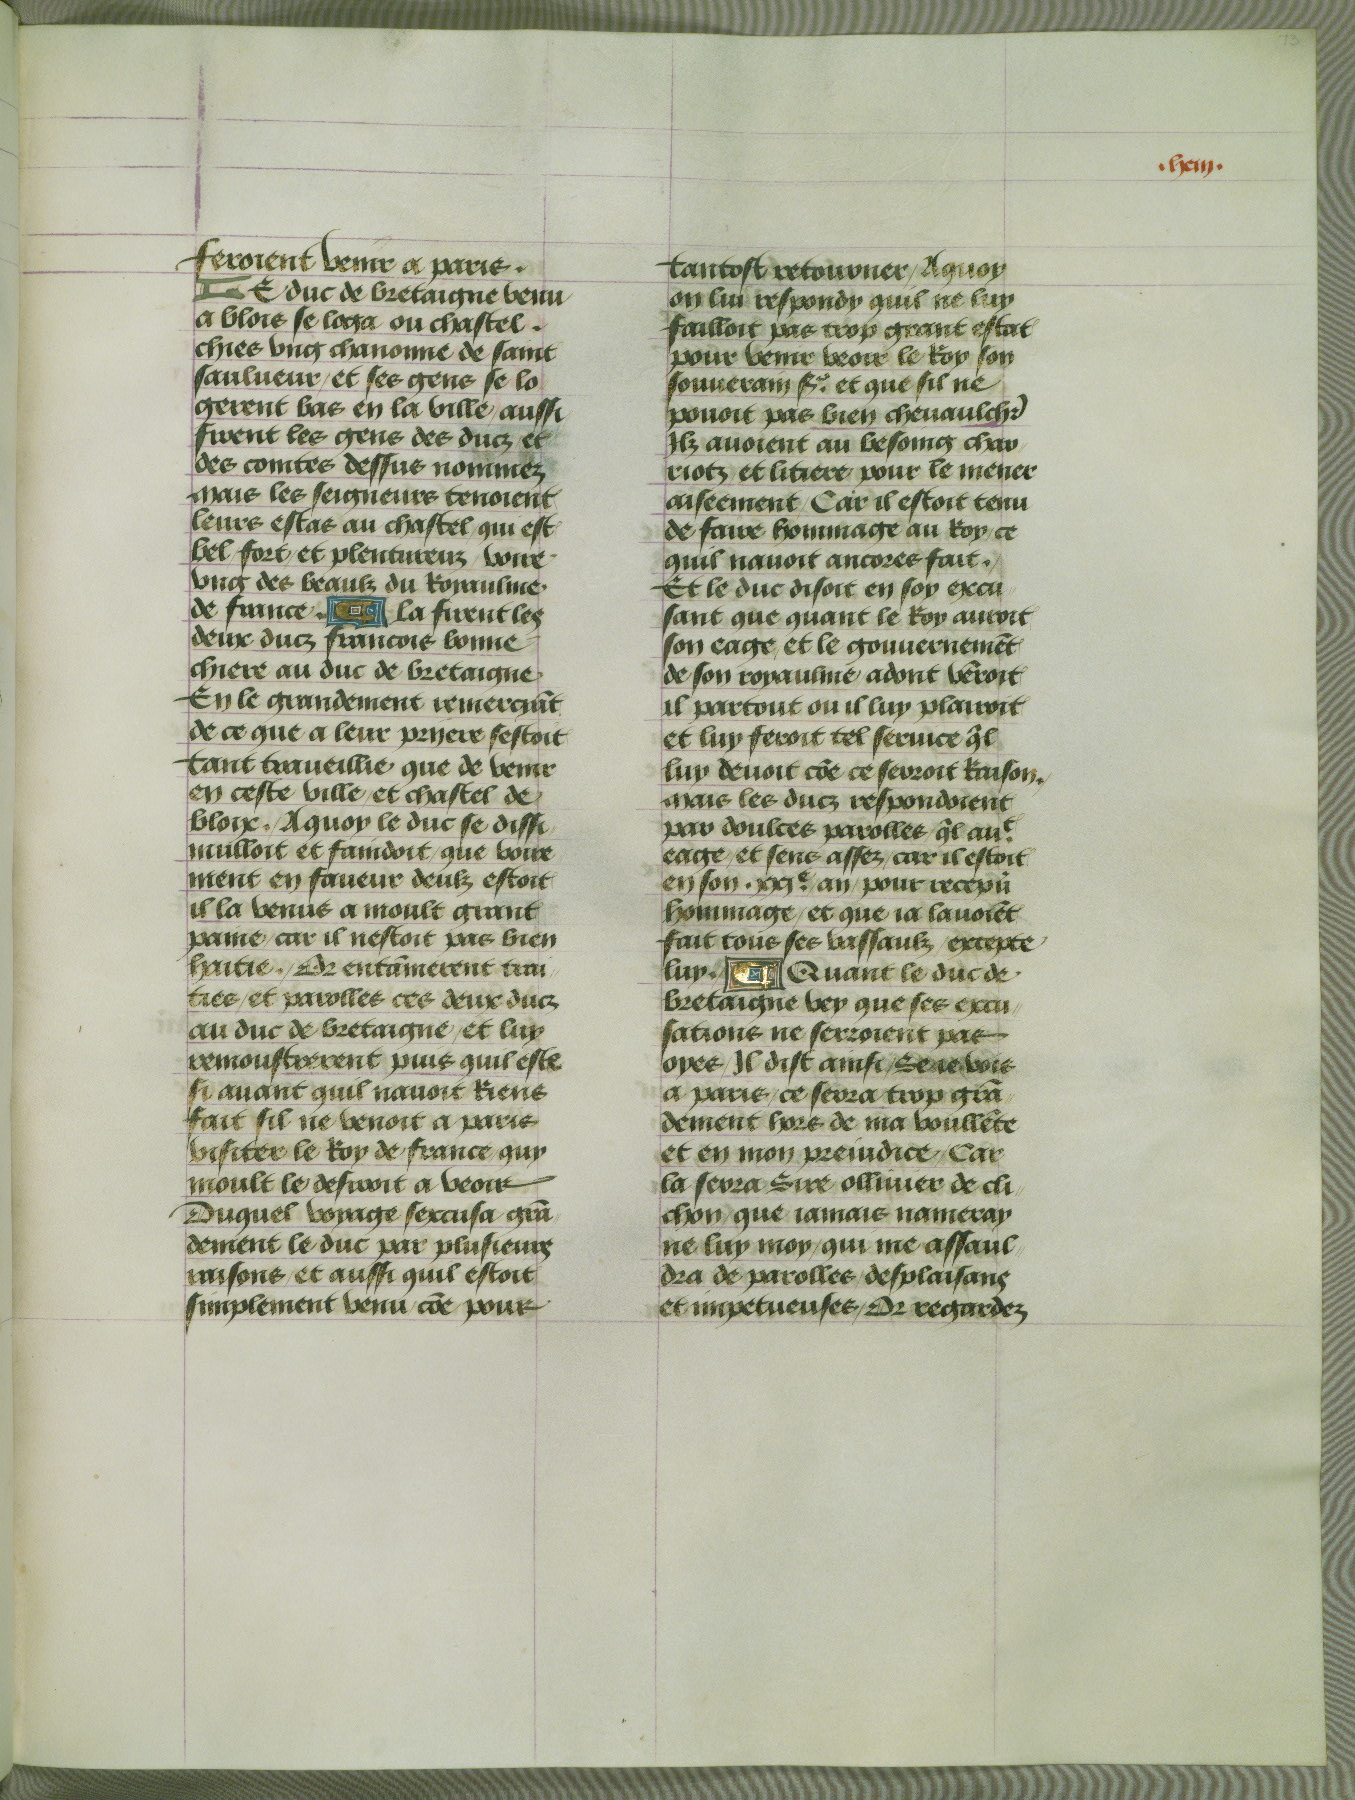 .lxxiii.
feroient venir a paris .
LE duc de bretaigne venu
a blois se loga ou chastel .
chies vng chanonne de saint
saulueur / et ses gens se lo
gerent bas en la ville / aussi
firent les gens des ducz / et
des comtes dessus nommez
mais les seigneurs tenoient
leurs estas au chastel / qui est
bel / fort / et plentureux / voire
vng des beaulz du Royaulme
de france . La firent les
deux ducz francois bonne
chiere au duc de bretaigne
En le grandement remerciãt
de ce que a leur pryere sestoit
tant traueillie que de venir
en ceste ville et chastel de
bloix . Aquoy le duc se dissi
mulloit et faindoit / que voire
ment en faueur deulz estoit
il la venus a moult grant
paine / car il nestoit pas bien
haitie . Or entãmerent trai
ties / et parolles ces deux ducz
au duc de bretaigne / et luy
remoustrerent puis quil este
si auant quil nauoit Riens
fait sil ne venoit a paris
visiter le Roy de france / quy
moult le desiroit a veoir
Duquel voyage sexcusa grã
dement le duc par plusieurs
raisons / et aussi quil estoit
simplement venu / cõe pour
tantost retourner / Aquoy
on lui respondy quil ne luy
failloit pas trop grant estat
pour venir veoir le Roy son
souuerain Sr. et que sil ne
pouoit pas bien cheuaulchr̃
Ilz auoient au besoing char
riotz et litiere pour le mener
aiseement / Car il estoit tenu
de faire hommage au Roy / ce
quil nauoit ancores fait .
Et le duc disoit en soy excu
sant que quant le Roy auroit
son eage / et le gouuernemẽt
de son royaulme / adont vẽroit
il partout ou il luy plairoit
et luy feroit tel seruice q̃l
luy deuoit cõe ce serroit Raison .
mais les ducz respondoient
par doulces parolles q̃l aut
eage / et sens assez / car il estoit
en son . xxje. an / pour recepu̾
hommage / et que ia lauoiẽt
fait tous ses vassaulz / excepte
luy . Quant le duc de
bretaigne vey que ses excu
sations ne serroient pas
oyes / Il dist ainsi / Se ie vois
a paris / ce serra trop grã
dement hors de ma voullẽte
et en mon preiudice / Car
la serra Sire olliuier de cli
chon / que iamais nameray
ne luy moy / qui me assaul
dra de parolles / desplaisans
et impetueuses / Or regardez